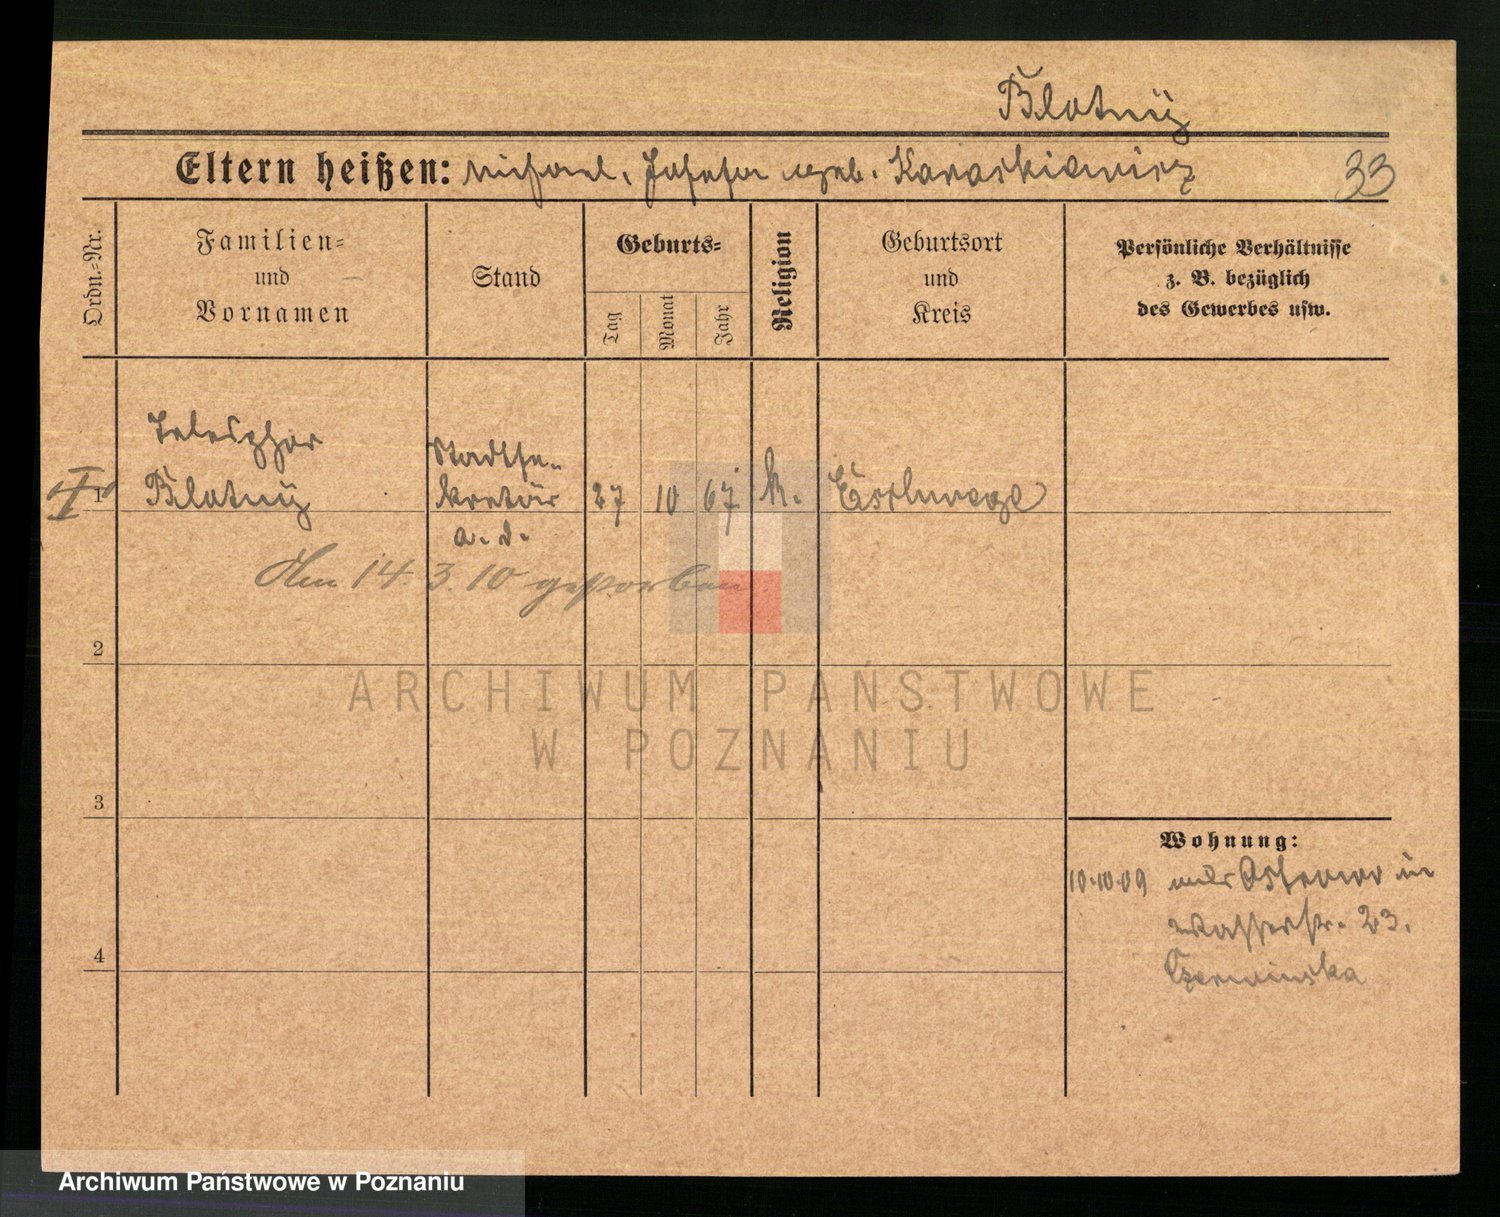 Blotnÿ
Eltern heißen: Michael, Josefa geb. Karaskiewicz
33
Ordn.-Nr.
Familien-
und
Vornamen
Stand
Geburts-
Tag
Monat
Jahr
Religion
Geburtsort
und
Kreis
Persönliche Verhältnisse
z. B. bezüglich
des Gewerbes usw.
Telesphor
Blotnÿ
Stadtse-
kretär
a. D.
1
27
10
67
k.
Am 14 3. 10 gestorben
2
3
4
Wohnung:
10.10.09 aus Ostrowo in
Wasserstr. 23.
Czerwinska
ARCHIWUM PAŃSTWOWE
W POZNANIU
Archiwum Państwowe w Poznaniu